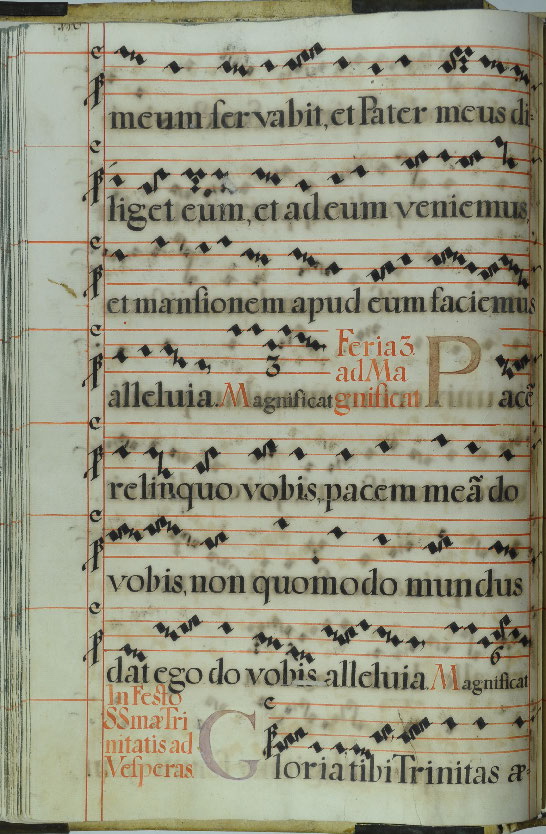 meum ſervabit, et Pater meus di-
liget eum, et ad eum veniemus,
et manſionem apud eum faciemus
3
alleluia. Magnificat
Feria 3.
ad Ma
gnificat
Pacē
relinquo vobis, pacem meã do
vobis, non quomodo mundus
6
dat ego do vobis alleluia. Magnificat
In Feſto
SSmæ Tri
nitatis ad
Veſperas
Gloria tibi Trinitas æ-